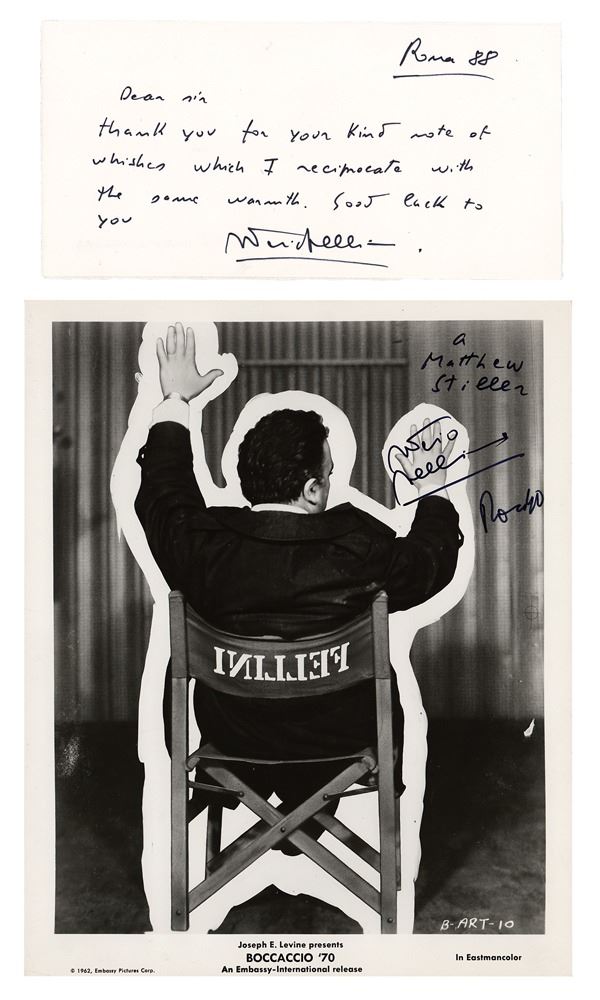 Roma 88
Dear sir
thank you for your kind note of
whishes which I reciprocate with
the same warmth. Good luck to
you
a
Matthew
Stiller
FELLINI
B-ART-10
Joseph E. Levine presents
BOCCACCIO '70
An Embassy-International release
© 1962, Embassy Pictures Corp.
In Eastmancolor